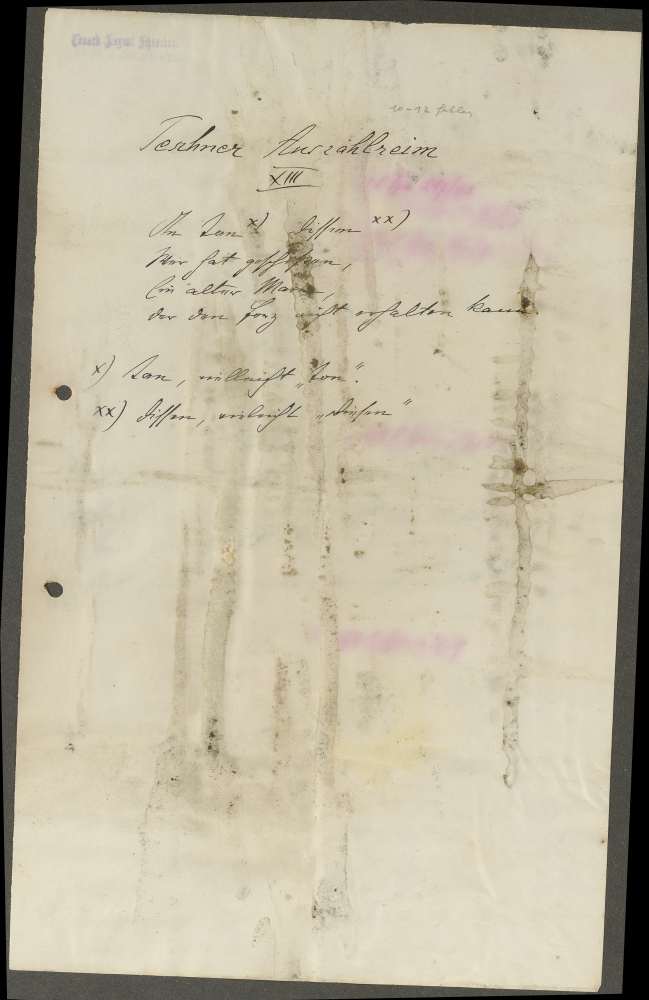 10-12 fehlen
Teschner Auszählreim
XIII
In tan x) dissen xx)
Wer hat geschissen,
Ein alter Mann,
der den Forz nicht erhalten kann.
x) tan, vielleicht „ton“.
xx) dissen, vieleicht „diesen“